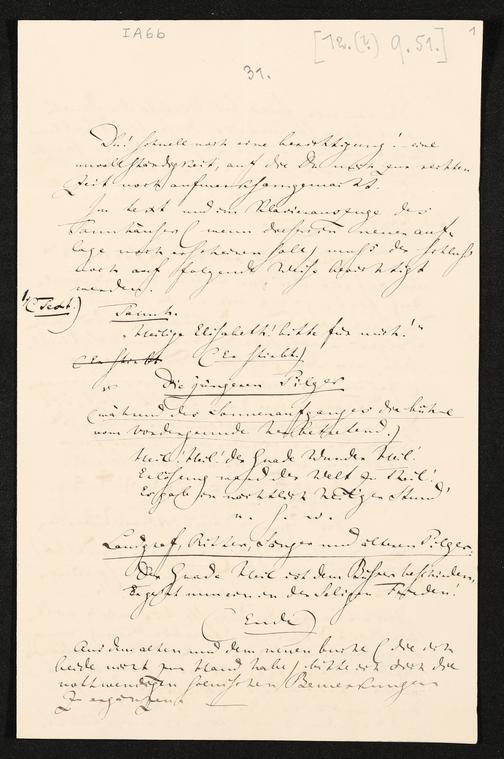 IA6b
[12.(?) 9. 51.]
1
31.
Du! schnell noch eine berichtigung! – eine
unvollständigkeit, auf die Du mich zur rechten
Zeit noch aufmerksam gemacht.
Im text und im Klavierauszuge des
Tannhäuser (wenn davon neue auf-
lage noch erscheinen soll, muß der schluß
noch auf folgende Weise berichtigt
werden.
1, (Text.)
Tannh.
„Heilige Elisabeth! bitte für mich!“
(Er stirbt (Er stirbt.)
Die jüngeren Pilger
(während des Sonnenaufganges die bühne
vom vordergrunde her betretend.)
Heil! Heil! der Gnade Wunder Heil!
Erlösung ward der Welt zu Theil!
Es gab in nächtlich heil'ger Stund'
u. s. w.
Landgraf, Ritter, Sänger und älteren Pilger.
Der Gnade Heil ist dem Büßer beschieden,
Er geht nun ein in der Seligen Frieden!
(Ende)
Aus dem alten und dem neuen buche (die ich
beide nicht zur Hand habe) bitte ich Dich die
nothwendigen scenischen Bemerkungen
zu ergänzen. —